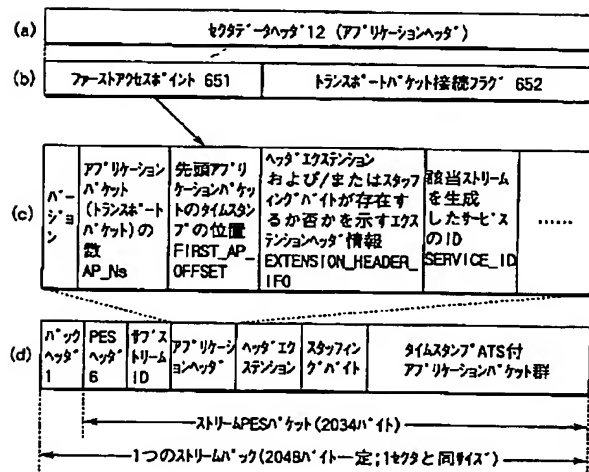 (a)
セクタデータヘッダ12 (アプリケーションヘッダ)
(b)
ファーストアクセスポイント 651
トランスポートパケット接続フラグ 652
(c)
バージョン
アプリケーション
パケット
(トランスポート
パケット)の
数
AP_Ns
先頭アプリ
ケーションパケッ
トのタイムスタン
プの位置
FIRST_AP_
OFFSET
ヘッダエクステンション
および/またはスタッフ
ィングバイトが存在す
るか否かを示すエクス
テンションヘッダ情報
EXTENSION_HEADER_
IFO
該当ストリーム
を生成
したサービス
のID
SERVICE_ID
......
(d)
パック
ヘッダ
1
PES
ヘッダ
6
サブス
トリーム
ID
アプリケーシ
ョンヘッダ
ヘッダエク
ステンション
スタッフィン
グバイト
タイムスタンプATS付
アプリケーションパケット群
ストリームPESパケット(2034バイト)
1つのストリームパック(2048バイト一定;1セクタと同サイズ)